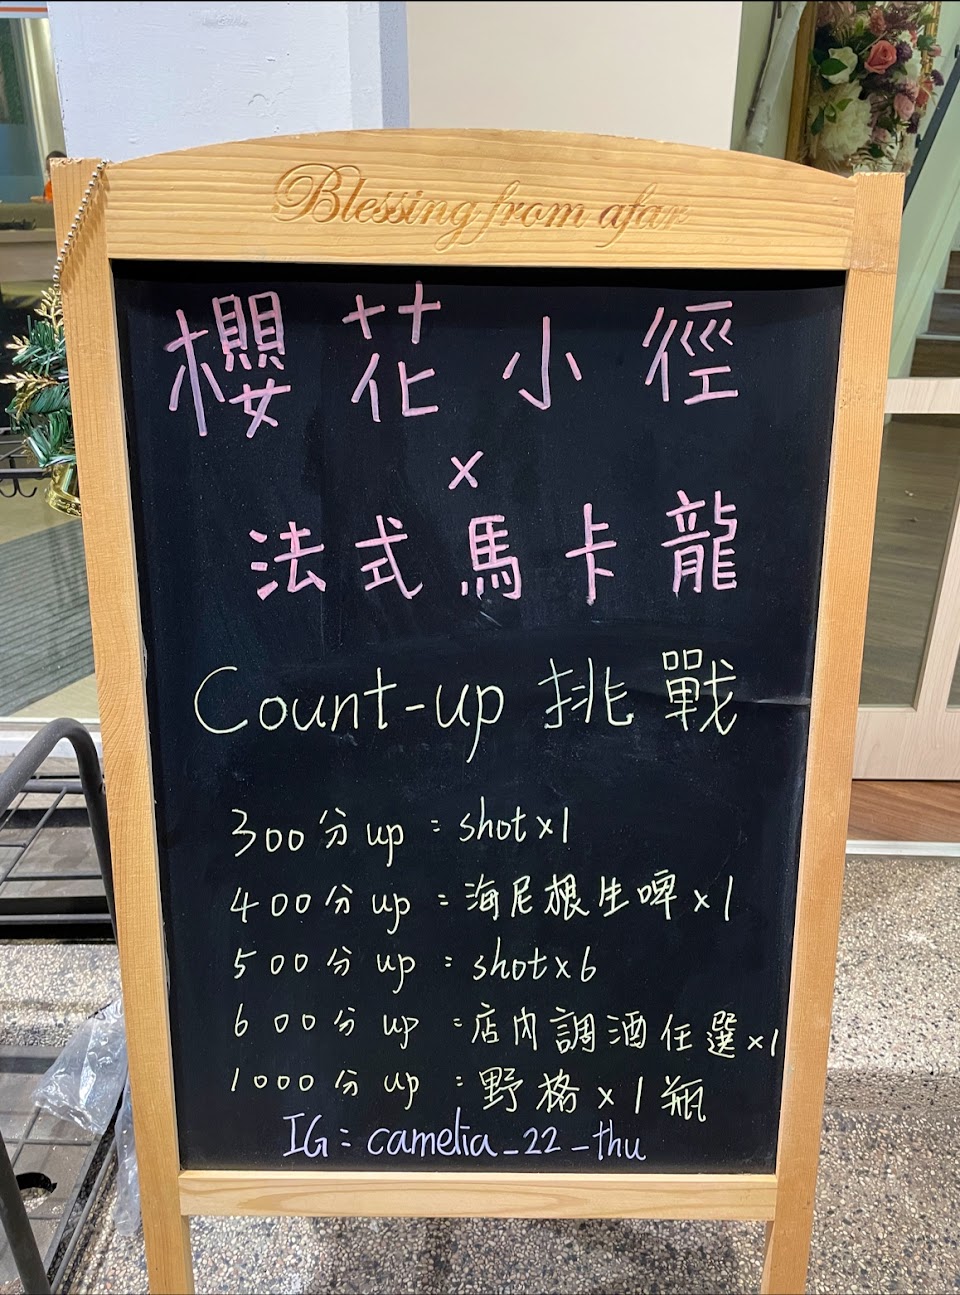 Blessing from afar
櫻花小徑
x
法式馬卡龍
Count-up 挑戰
300分 up : shot x 1
400分 up : 海尼根生啤 x 1
500分 up : shot x 6
600分 up : 店內調酒任選 x 1
1000分 up : 野格 x 1 瓶
IG : camelia_22_thu